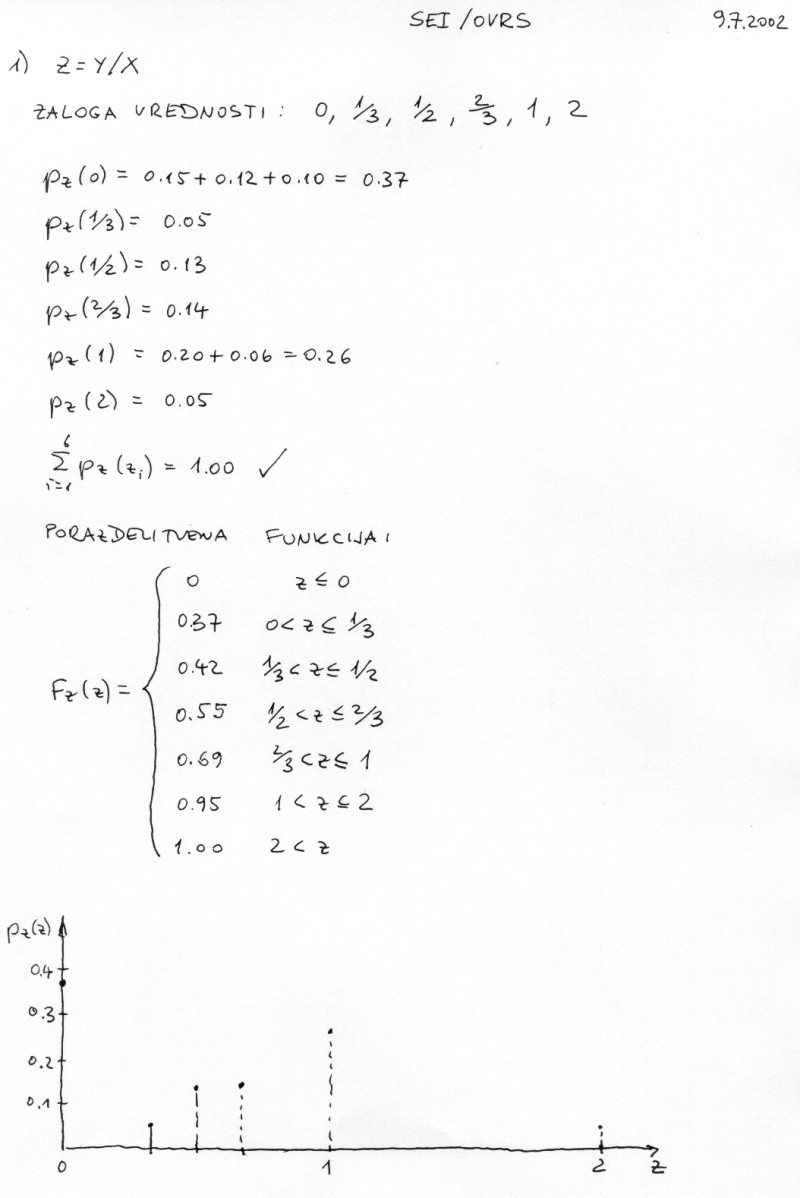 SEI / OVRS 9.7.2002
1) Z = Y/X
ZALOGA VREDNOSTI: 0, 1/3, 1/2, 2/3, 1, 2
p_z(0) = 0.15 + 0.12 + 0.10 = 0.37
p_z(1/3) = 0.05
p_z(1/2) = 0.13
p_z(2/3) = 0.14
p_z(1) = 0.20 + 0.06 = 0.26
p_z(2) = 0.05
6
Σ p_z(z_i) = 1.00 ✓
i=1
PORAZDELITVENA FUNKCIJA:
0 z ≤ 0
0.37 0 < z ≤ 1/3
0.42 1/3 < z ≤ 1/2
F_z(z) =
0.55 1/2 < z ≤ 2/3
0.69 2/3 < z ≤ 1
0.95 1 < z ≤ 2
1.00 2 < z
p_z(z)
0.4
0.3
0.2
0.1
0 1 2 z